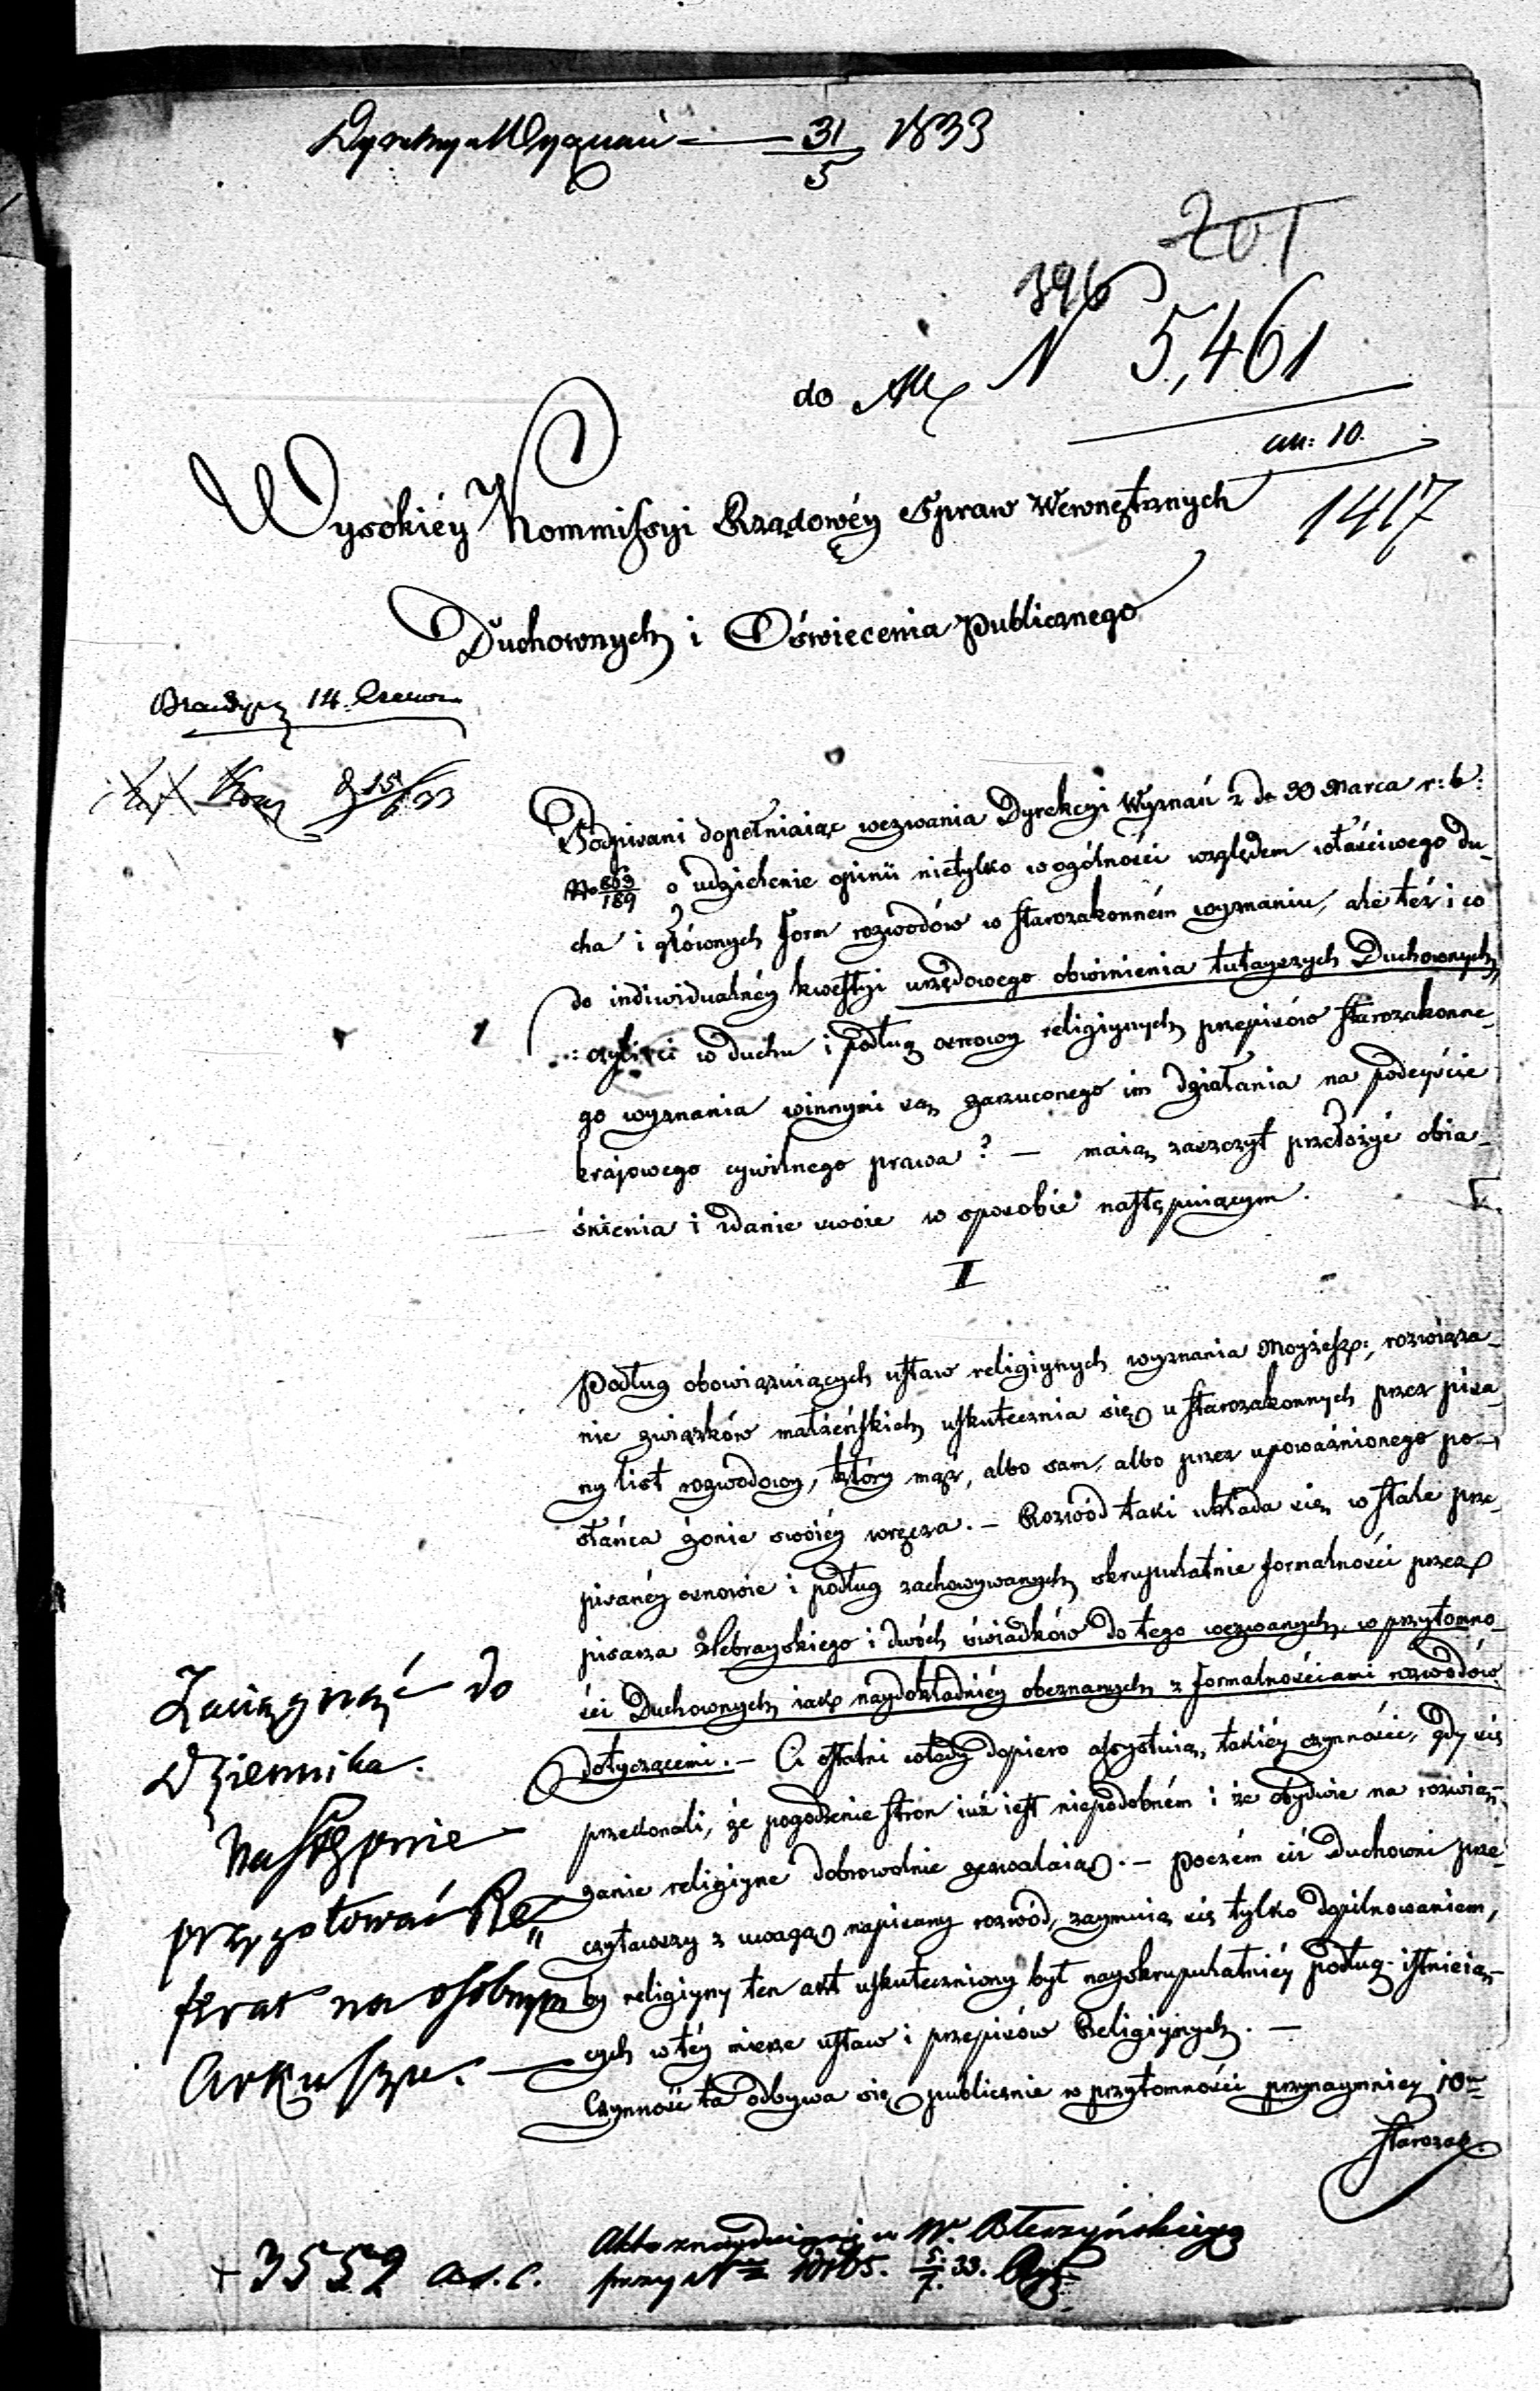 Dyrekcya Wyznań — 31/5 1833
201
396
do N 5,461
an: 10.
1417
Wysokiéy Kommissyi Rządowéy Spraw Wewnętrznych
Duchownych i Oświecenia Publicznego
14. Czerwca
15/6 33
Podpisani dopełniaiąc wezwania Dyrekcyi Wyznań z d. 30 Marca r: b:
No 863/189 o udzielenie opinii nietylko w ogólności względem właściwego du-
cha i głównych form rozwodów w starozakonném wyznaniu, ale też i co
do indiwidualnéy kwestyi urzędowego obwinienia tutayszych Duchownych,
: czyli ci w duchu i podług osnowy religiynych przepisów starozakonne-
go wyznania winnymi są zarzuconego im działania na podeyście
krajowego cywilnego prawa? — maią zaszczyt przełożyć obia-
śnienia i zdanie swoie w sposobie następuiącym.
I
Podług obowiązuiących ustaw religiynych wyznania Moyżesz:, rozwiąza-
nie związków małżeńskich uskutecznia się u starozakonnych przez pisa-
ny list rozwodowy, który mąż, albo sam, albo przez upoważnionego po-
słańca żonie swoiéy wręcza. — Rozwód taki układa się w stale prze-
pisanéy osnowie i podług zachowywanych skrupulatnie formalności przez
pisarza Hebrayskiego i dwóch świadków do tego wezwanych, w przytomno-
ści Duchownych iak naydokładniéy obeznanych z formalnościami rozwodów
dotyczącemi. — Ci ostatni wtedy dopiero assystuią takiéy czynności, gdy się
przekonali, że pogodzenie stron iuż iest niepodobném i że obydwie na rozwią-
zanie religiyne dobrowolnie zezwalaią. — Poczém ciż Duchowni prze-
czytawszy z uwagą napisany rozwód, zaymuią się tylko dopilnowaniem,
by religiyny ten akt uskuteczniony był nayskrupulatniéy podług istnieią-
cych w téy mierze ustaw i przepisów Religiynych. —
Czynność ta odbywa się publicznie w przytomności przynaymniey 10ciu
starozak.
Zaciągnąć do
Dziennika.
Następnie
przygotować Re"
ferat na osobnym
Arkuszu. —
+ 3552
Akta znayduią się u W. Bteszyńskiego
przy N 5/7. 33.